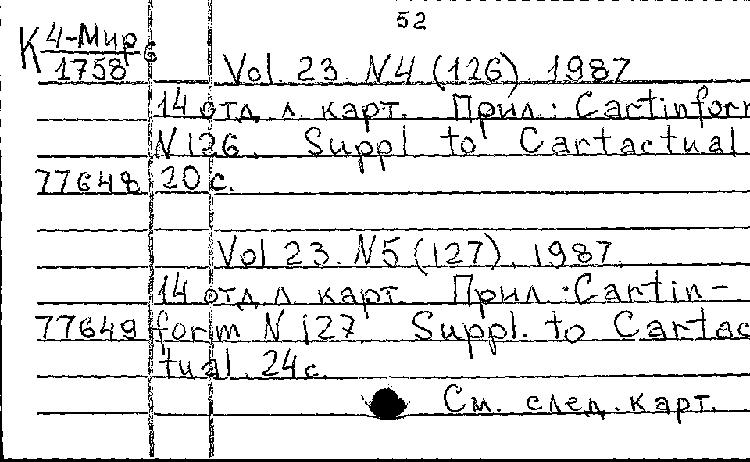 52
К 4-Мир 6
1758
Vol. 23. N4 (126). 1987
14 отд. л. карт. Прил.: Cartinform
N126. Suppl. to Cartactual
77648 20 с.
Vol 23. N5 (127). 1987.
14 отд. л. карт. Прил.: Cartin-
77649 form N 127 Suppl. to Cartac
tual. 24с.
См. след. карт.